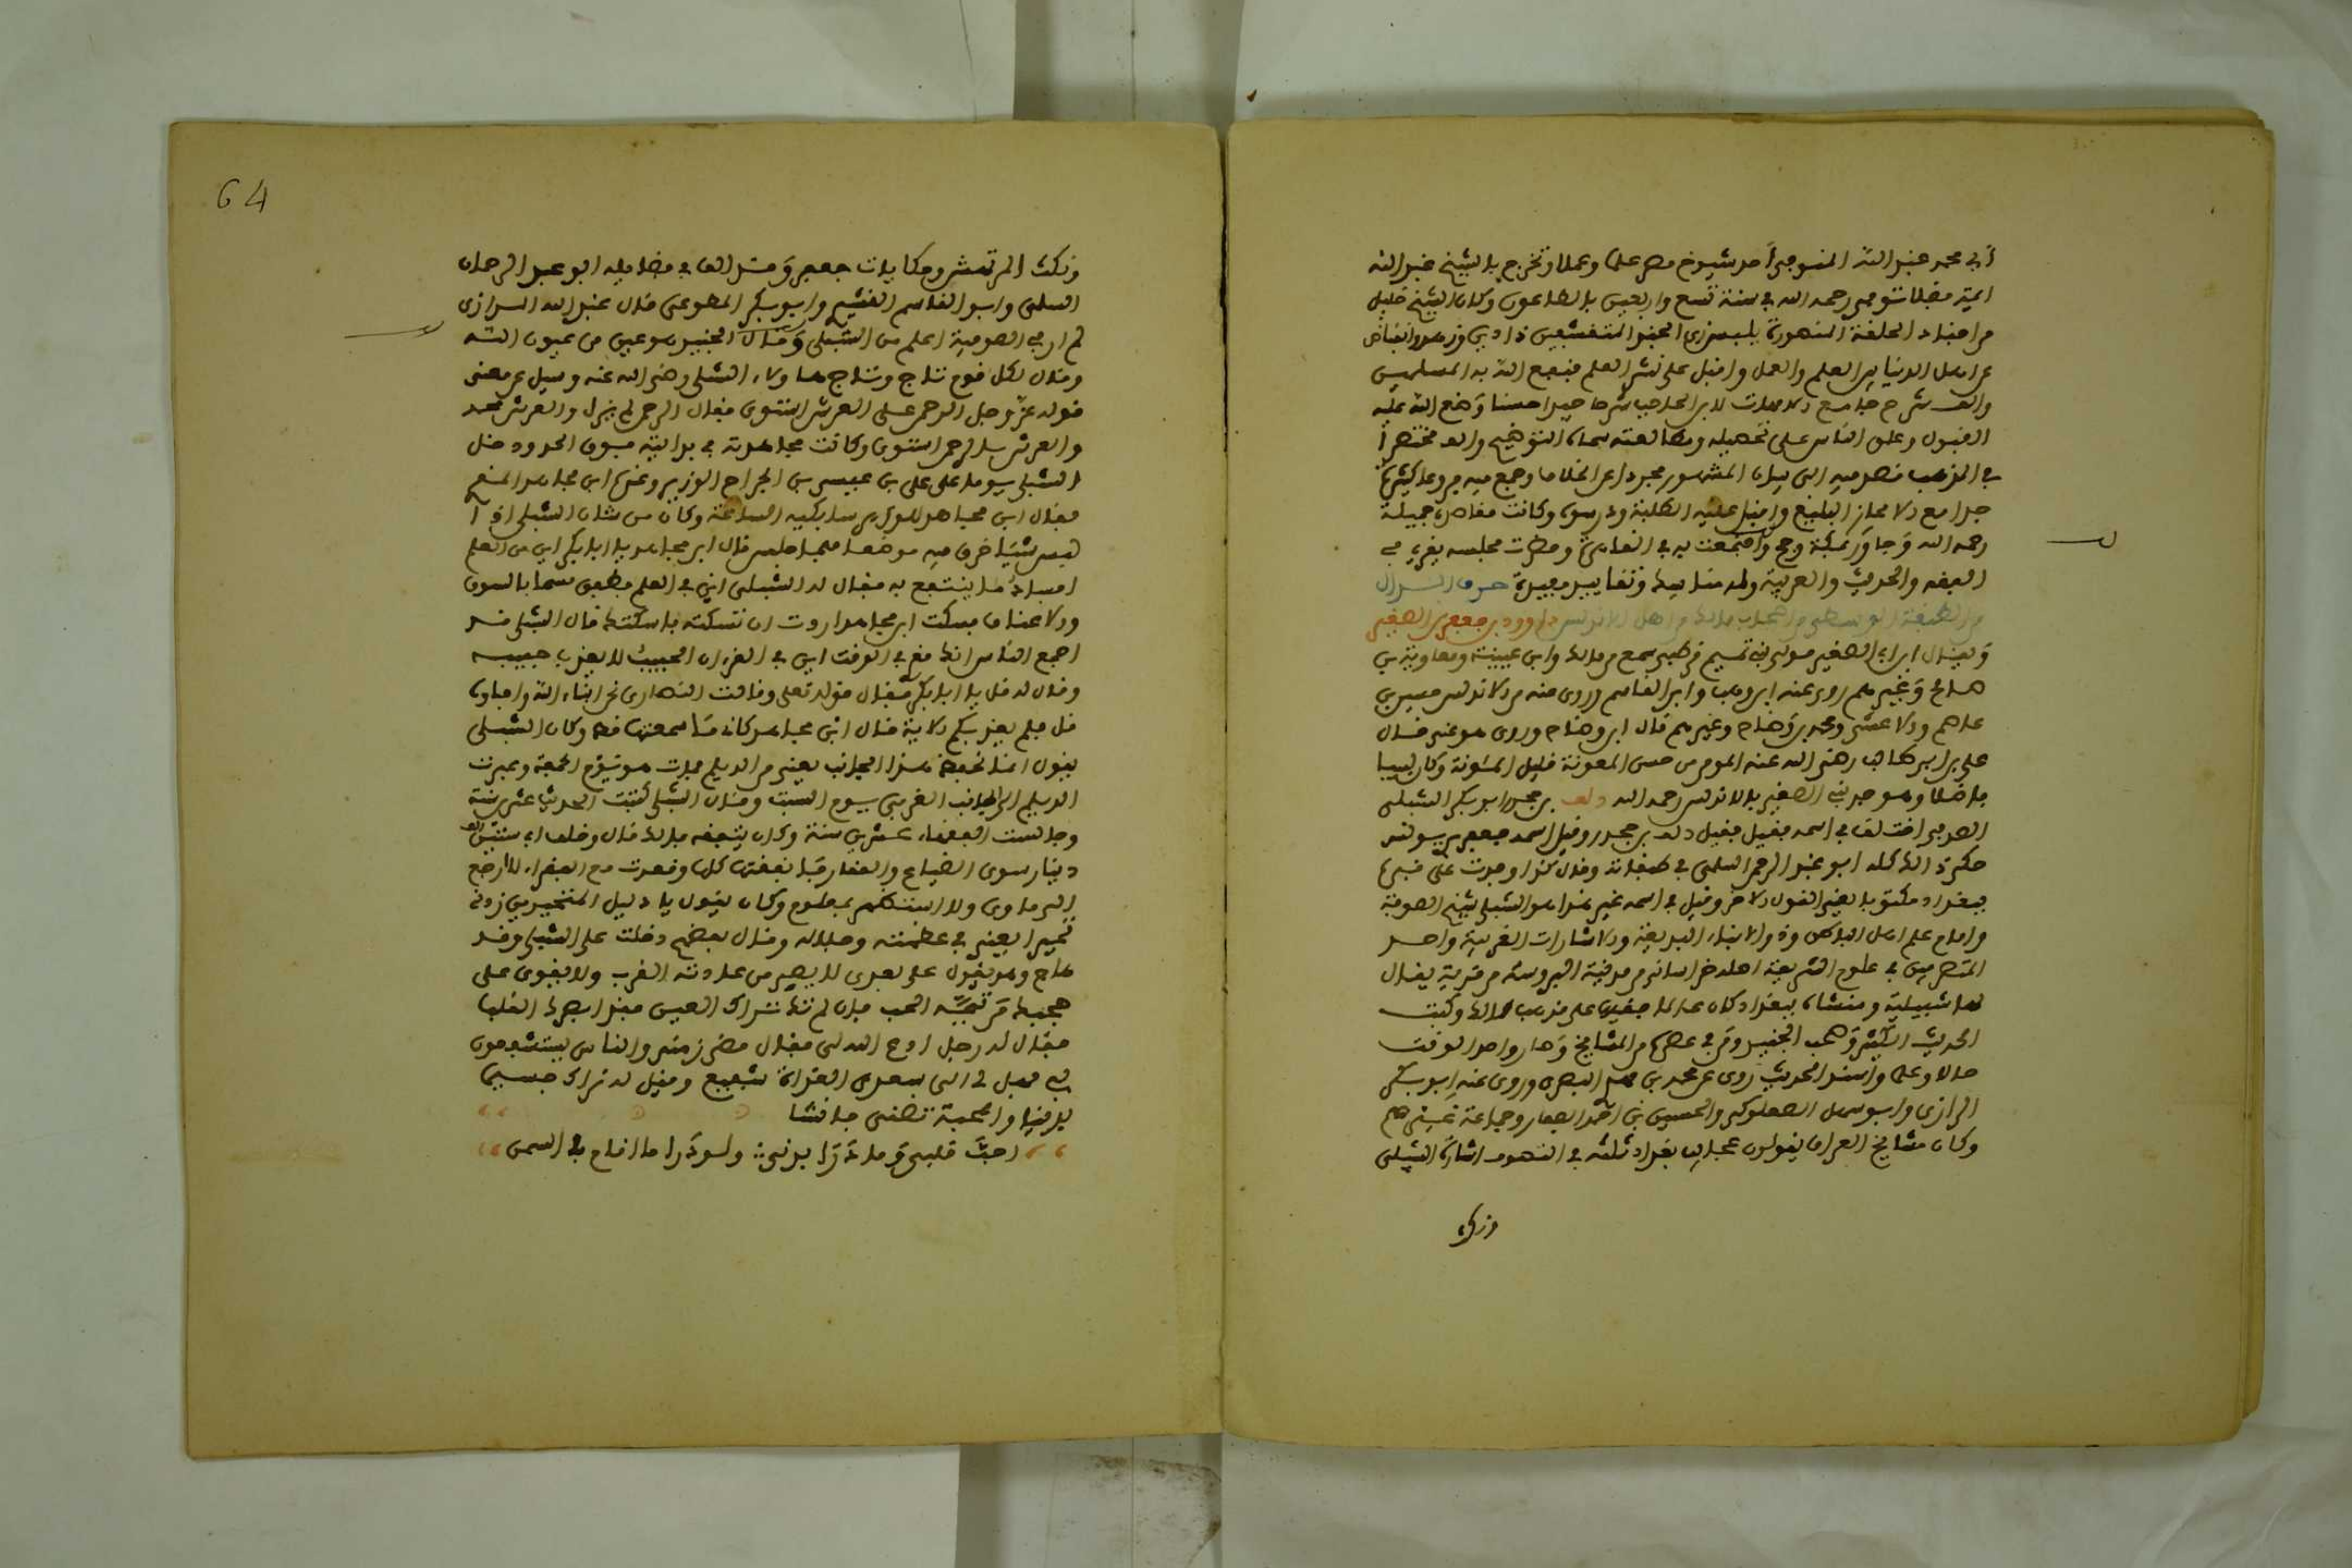 أبي محمد عبد الله المنوفي أحد شيوخ مصر علما وعملا وتخرج بالشيخ عبد الله
ايمة فضلا توفي رحمه الله في سنة تسع واربعين بالطاعون وكان الشيخ خليل
من اجناد الحلقة المنصورة يلبس زي الجند المتقشفين ذا دين وفضل وانقباض
عن اهل الدنيا بين العلم والعمل واقبل على نشر العلم فنفع الله به المسلمين
والف شرح جامع الامهات لابن الحاجب شرحا حسنا وضع الله عليه
القبول وعكف الناس على تحصيله ومطالعته سماه التوضيح والف مختصرا
في المذهب قصد فيه الى بيان المشهور مجردا عن الخلاف وجمع فيه فروعا كثيرة
جدا مع الايجاز البليغ واقبل عليه الطلبة ودرسوه وكانت مقاصده جميلة
رحمه الله وجاور بمكة وحج واجتمعت به في القاهرة وحضرت مجلسه يقرئ في
الفقه والحديث والعربية وله تقاييد مفيدة حرف الدال
من الطبقة الوسطى من اصحاب مالك من اهل الاندلس داوود بن جعفر بن الصغير
ويقال ابن ابي الصغير مولى بني تميم قرطبي سمع من مالك وابن عيينة ومعاوية بن
صالح وغيرهم روى عنه ابن وهب وابن القاسم وروى عنه من الاندلس حسين بن
عاصم والاعشى ومحمد بن وضاح وغيرهم قال ابن وضاح وروى هو عنه قال
علي بن ابي طالب رضي الله عنه المومن حسن المعونة قليل المئونة وكان
فاضلا وهو جد بني الصغير بالاندلس رحمه الله دلف بن جحدر ابو بكر الشبلي
الصوفي اختلف في اسمه فقيل دلف بن جحدر وقيل اسمه جعفر بن يونس
حكى ذلك كله ابو عبد الرحمن السلمي في طبقاته وقال كذا وجدت على قبره
ببغداد مكتوبا يعني القول الاخر وقيل في اسمه غير هذا هو الشبلي شيخ الصوفية
وامام علم اهل الباطن وذو الانباء البديعة والاشارات الغريبة واحد
المتصرفين في علوم الشريعة اصله خراساني من مدينة اشروسنة من قرية يقال
لها شبيلية ومنشاه ببغداد كان عالما فقيها على مذهب مالك وكتب
الحديث الكثير وصحب الجنيد ومن في عصره من المشايخ وصار واحد الوقت
حالا وعلما واسند الحديث روى عن محمد بن مهدي البصري وروى عنه ابو بكر
الرازي وابو سهل الصعلوكي والحسين بن احمد الصفار وجماعة غيرهم
وكان مشايخ العراق يقولون عجايب بغداد ثلثة في التصوف اشارة الشبلي
ونكث
64
ونكث المرتعش وحكايات جعفر وقد الف في فضايله ابو عبد الرحمان
السلمي وابو القاسم القشيري وابو بكر المطوعي قال عبد الله الرازي
لم ار في الصوفية اعلم من الشبلي وقال الجنيد هو عين من عيون الله
وقال لكل قوم تاج وتاج هاولاء الشبلي رضي الله عنه وسيل عن معنى
قوله عز وجل الرحمن على العرش استوى فقال الرحمن لم يزل والعرش محدث
والعرش بالرحمن استوى وكانت مجاهدته في بدايته فوق الحدود دخل
الشبلي يوما على علي بن عيسى بن الجراح الوزير وعنده ابن مجاهد المقرئ
فقال ابن مجاهد للوزير ساسكته الساعة وكان من شان الشبلي اذا
لبس شيئا خرق فيه موضعا فلما جلس قال ابن مجاهد يا ابا بكر اين من العلم
افساد ما ينتفع به فقال له الشبلي اين في العلم فطفق مسحا بالسوق
والاعناق فسكت ابن مجاهد اردت ان تسكته فاسكتك قال الشبلي قد
اجمع الناس انك مقرئ الوقت اين في القرءان الحبيب لا يعذب حبيبه
وقال له قل يا ابا بكر فقال قوله تعلى وقالت النصارى نحن ابناء الله واحباؤه
قل فلم يعذبكم الاية فقال ابن مجاهد كاني ما سمعتها قط وكان الشبلي
يقول انما يحفظ هذا الجانب يعني من الديلم فمات هو يوم الجمعة وعبرت
الديلم الى الجانب الغربي يوم السبت وقال الشبلي كتبت الحديث عشرين سنة
وجالست الفقهاء عشرين سنة وكان يتفقه بمالك قال وخلف ابي ستين الف
دينار سوى الضياع والعقار فانفقتها كلها وقعدت مع الفقراء لا ارجع
الى ماوى ولا استظهر بمعلوم وكان يقول يا دليل المتحيرين زدني
تحيرا يعني في عظمته وجلاله وقال بعضهم دخلت على الشبلي وقد
هاج وهو يقول على بعدك لا يصبر من عادته القرب ولا يقوى على
حجبك من تيمه الحب فان لم تك تراك العين فقد ابصرك القلب
فقال له رجل ادع الله لي فقال مضى زمن والناس يستشفعون
بي فهل لي الى سعدى الغداة شفيع وقيل له نراك جسيما
بدينا والمحبة تضني فانشا
احب قلبي وما درى بدني ∴ ولو درى ما اقام في السمن